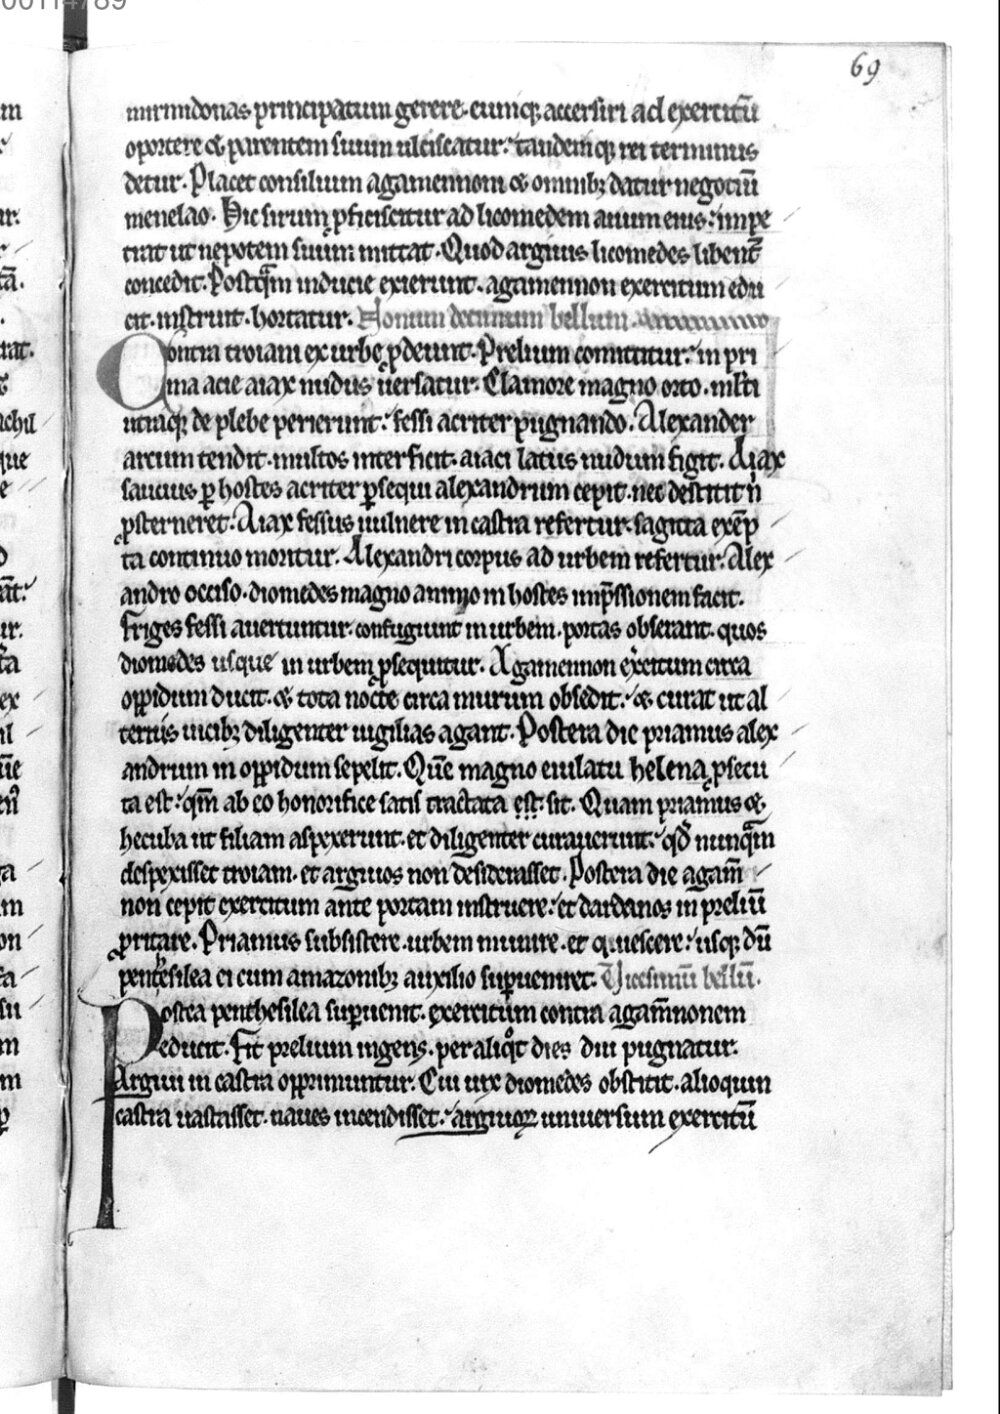 69
mirmidonas principatum gerere. eumq; accersiri ad exercitū
oportere & parentem suum ulciscatur. tandemq; rei terminus
detur. Placet consilium agamennoni & omnib; datur negociū
menelao. Hic sirum ꝓficiscitur ad licomedem auum eius. impe
trat ut nepotem suum mittat. Quod argiuis licomedes libent̄
concedit. Postq̄m inducie exierunt. agamennon exercitum edu
cit. instruit. hortatur. Nonum decimum bellum.
Contra troiani ex urbe ꝓdeunt. Prelium committitur. in pri
ma acie aiax nudus ūersatur. Clamore magno orto. ml̄ti
utriusq; de plebe perierunt. fessi acriter pugnando. Alexander
arcum tendit. multos interficit. aiaci latus nudum figit. Aiax
saucius ꝑ hostes acriter ꝑsequi alexandrum cepit. nec destitit n̄
ꝓsterneret. Aiax fessus uulnere in castra refertur. sagitta exēp
ta continuo moritur. Alexandri corpus ad urbem refertur. Alex
andro occiso. diomedes magno animo in hostes imp̄ssionem facit.
Friges fessi auertuntur. confugiunt in urbem. portas obserant. quos
diomedes usque in urbem ꝑsequitur. Agamennon exercitum circa
oppidum ducit. & tota nocte circa murum obsedit. & curat ut al
ternis uicib; diligenter uigilias agant. Postera die priamus alex
andrum in oppidum sepelit. Quē magno eiulatu helena ꝓsecu
ta est. qm̄ ab eo honorifice satis tractata est. sit. Quam priamus &
hecuba ut filiam aspexerunt. et diligenter curauerunt. qd̄ nunq̄m
despexisset troiam. et argiuos non desiderasset. Postera die agam̄
non cepit exercitum ante portam instruere. et dardanos in preliū
ꝓritare. Priamus subsistere. urbem munire. et quiescere. usq; dū
pentesilea ei cum amazonib; auxilio suꝑueniret. Vicesimū bellū.
Postea penthesilea suꝑuenit. exercitum contra agam̄nonem
educit. Fit prelium ingens. per aliqot dies diu pugnatur.
Argiui in castra opprimuntur. Cui uix diomedes obstitit. alioquin
castra uastasset. naues incendisset. argiuoꝝ uniuersum exercitū